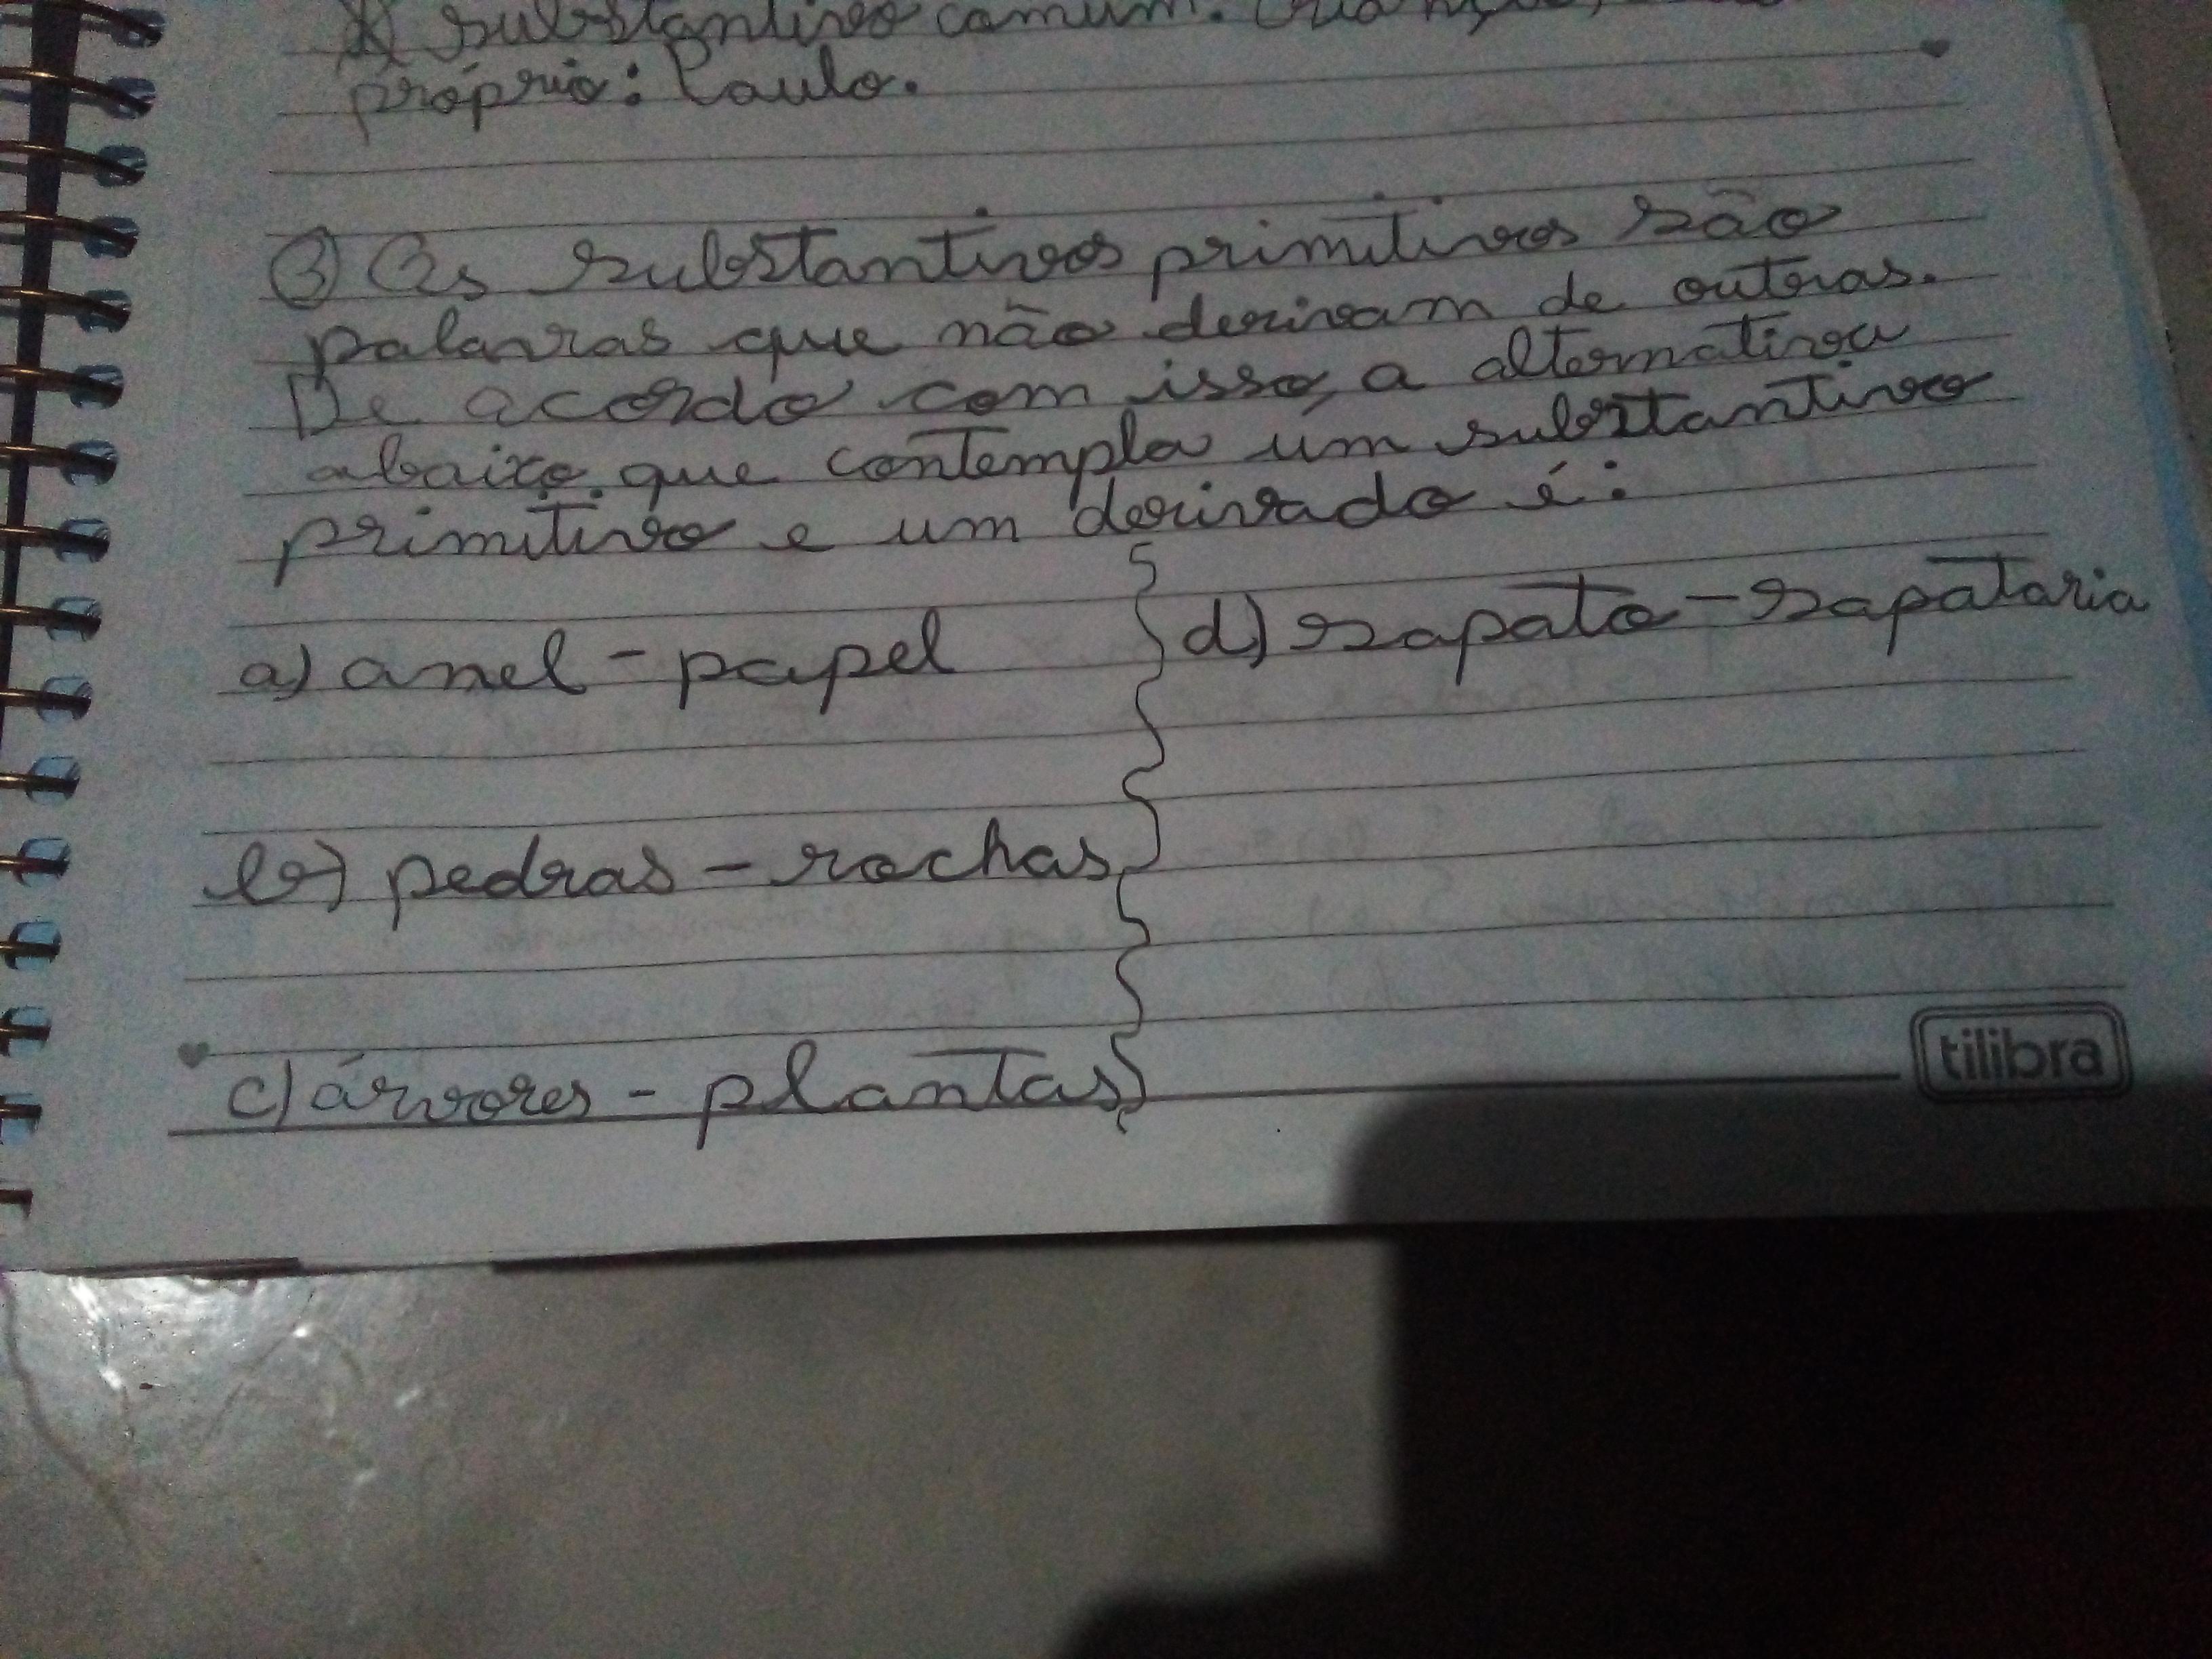 substantivo comum:
próprio: Paulo.
3) Os substantivos primitivos são
palavras que não derivam de outras.
De acordo com isso, a alternativa
abaixo, que contempla um substantivo
primitivo e um derivado é:
a) anel - papel
d) sapato - sapataria
b) pedras - rochas
c) árvores - plantas
tilibra